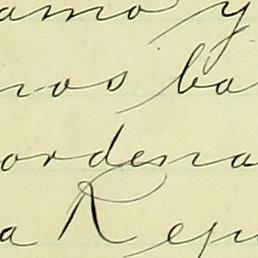 amo y
nos ba
ordena
a Repu